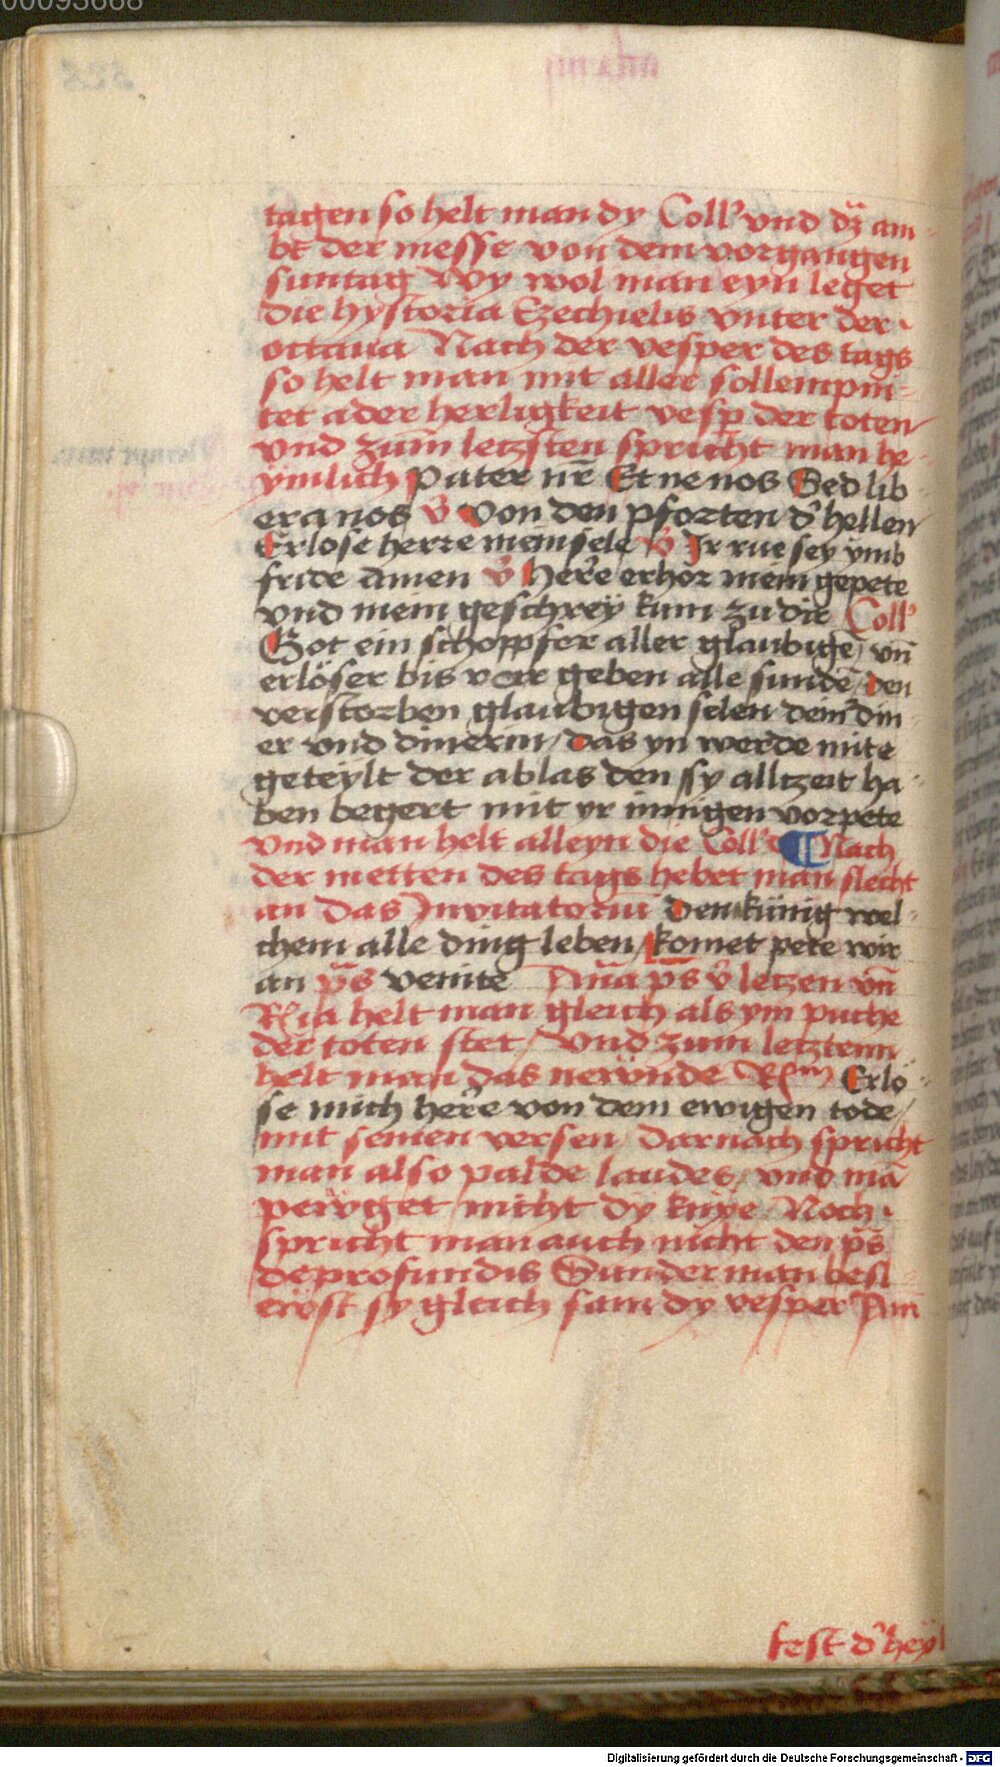 00093668
tagen so helt man dy Coll' vnd dz̄ am-
bt der messe von dem vorgangen
suntag Wy wol man eyn leget
die hystoria Ezechielis vnter der
octaua Nach der vesper des tags
so helt man mit aller sollempni-
tet ader herligkeit vesp̄ der toten
vnd zum letzsten spricht man he-
ymlich Pater nr̄ Et ne nos Sed lib
era nos V̄ Von den pforten d' hellen
Erlose herre mein sele V̄ Ir rue sey ymb
fride Amen V̄ Here erhor mein gepete
vnd mein geschrey kum zu dir Coll'
Got ein schoppfer aller glaubigē vn̄
erlöser bis vorgeben alle sundē / den
verstorben glaubigen selen dein' din
er vnd dinerin / das yn werde mite
geteylt der ablas den sy alltzeit ha-
ben begert mit yr innigen vorpete
vnd man helt alleyn die Coll' ¶ Nach
der metten des tags hebet man slecht
an das Inuitatoriū Dem künig wel-
chem alle ding leben / komet pete wir
an p̄s venite Ana p̄s v̄ letzen vn̄
Ria helt man gleich als ym puche
der toten stet / vnd zum letztenn
helt man das newnde Rm Erlo-
se mich here von dem ewigen tode /
mit seinen versen / darnach spricht
man also palde laudes / vnd mā
pewget nicht dy knye Noch
spricht man auch nicht den p̄s
de profundis Sunder man besl
ewst sy gleich sam dy vesper Am
fest d' heyl
Digitalisierung gefördert durch die Deutsche Forschungsgemeinschaft - DFG